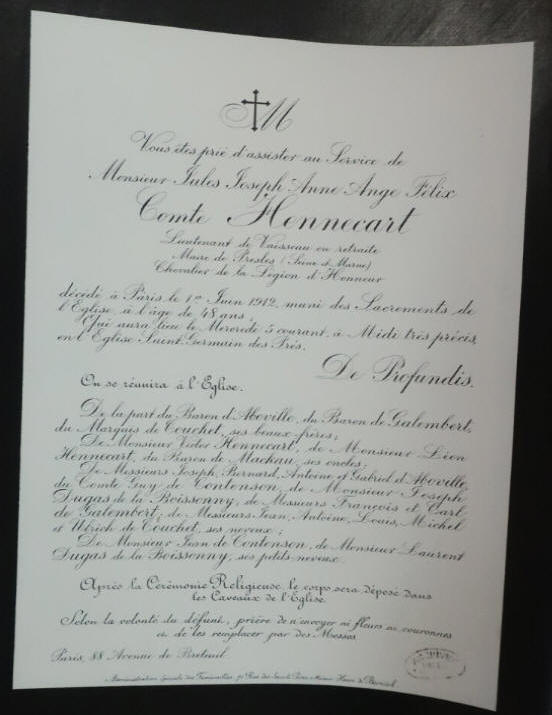 M
Vous êtes prié d'assister au Service de
Monsieur Jules Joseph Anne Ange Félix
Comte Hennecart
Lieutenant de Vaisseau en retraite
Maire de Presles (Seine et Marne)
Chevalier de la Légion d'Honneur
décédé à Paris, le 1er Juin 1912, muni des Sacrements de
l'Eglise, à l'âge de 48 ans;
Qui aura lieu le Mercredi 5 courant, à Midi très précis,
en l'Eglise Saint Germain des Prés.
De Profundis.
On se réunira à l'Eglise.
De la part du Baron d'Aboville, du Baron de Galembert,
du Marquis de Touchet, ses beaux-frères;
De Monsieur Victor Hennecart, de Monsieur Léon
Hennecart, du Baron de Mackau, ses oncles;
De Messieurs Joseph, Bernard, Antoine et Gabriel d'Aboville,
du Comte Guy de Contenson, de Monsieur Joseph
Dugas de la Boissonny, de Messieurs François et Carl
de Galembert, de Messieurs Jean, Antoine, Louis, Michel
et Ulrich de Touchet, ses neveux;
De Monsieur Jean de Contenson, de Monsieur Laurent
Dugas de la Boissonny, ses petits-neveux.
Après la Cérémonie Religieuse, le corps sera déposé dans
les Caveaux de l'Eglise.
Selon la volonté du défunt, prière de n'envoyer ni fleurs ni couronnes
et de les remplacer par des Messes
Paris, 88 Avenue de Breteuil.
Administration Spéciale des Funérailles, Rue des Saints Pères, Maison Henri de Borniol